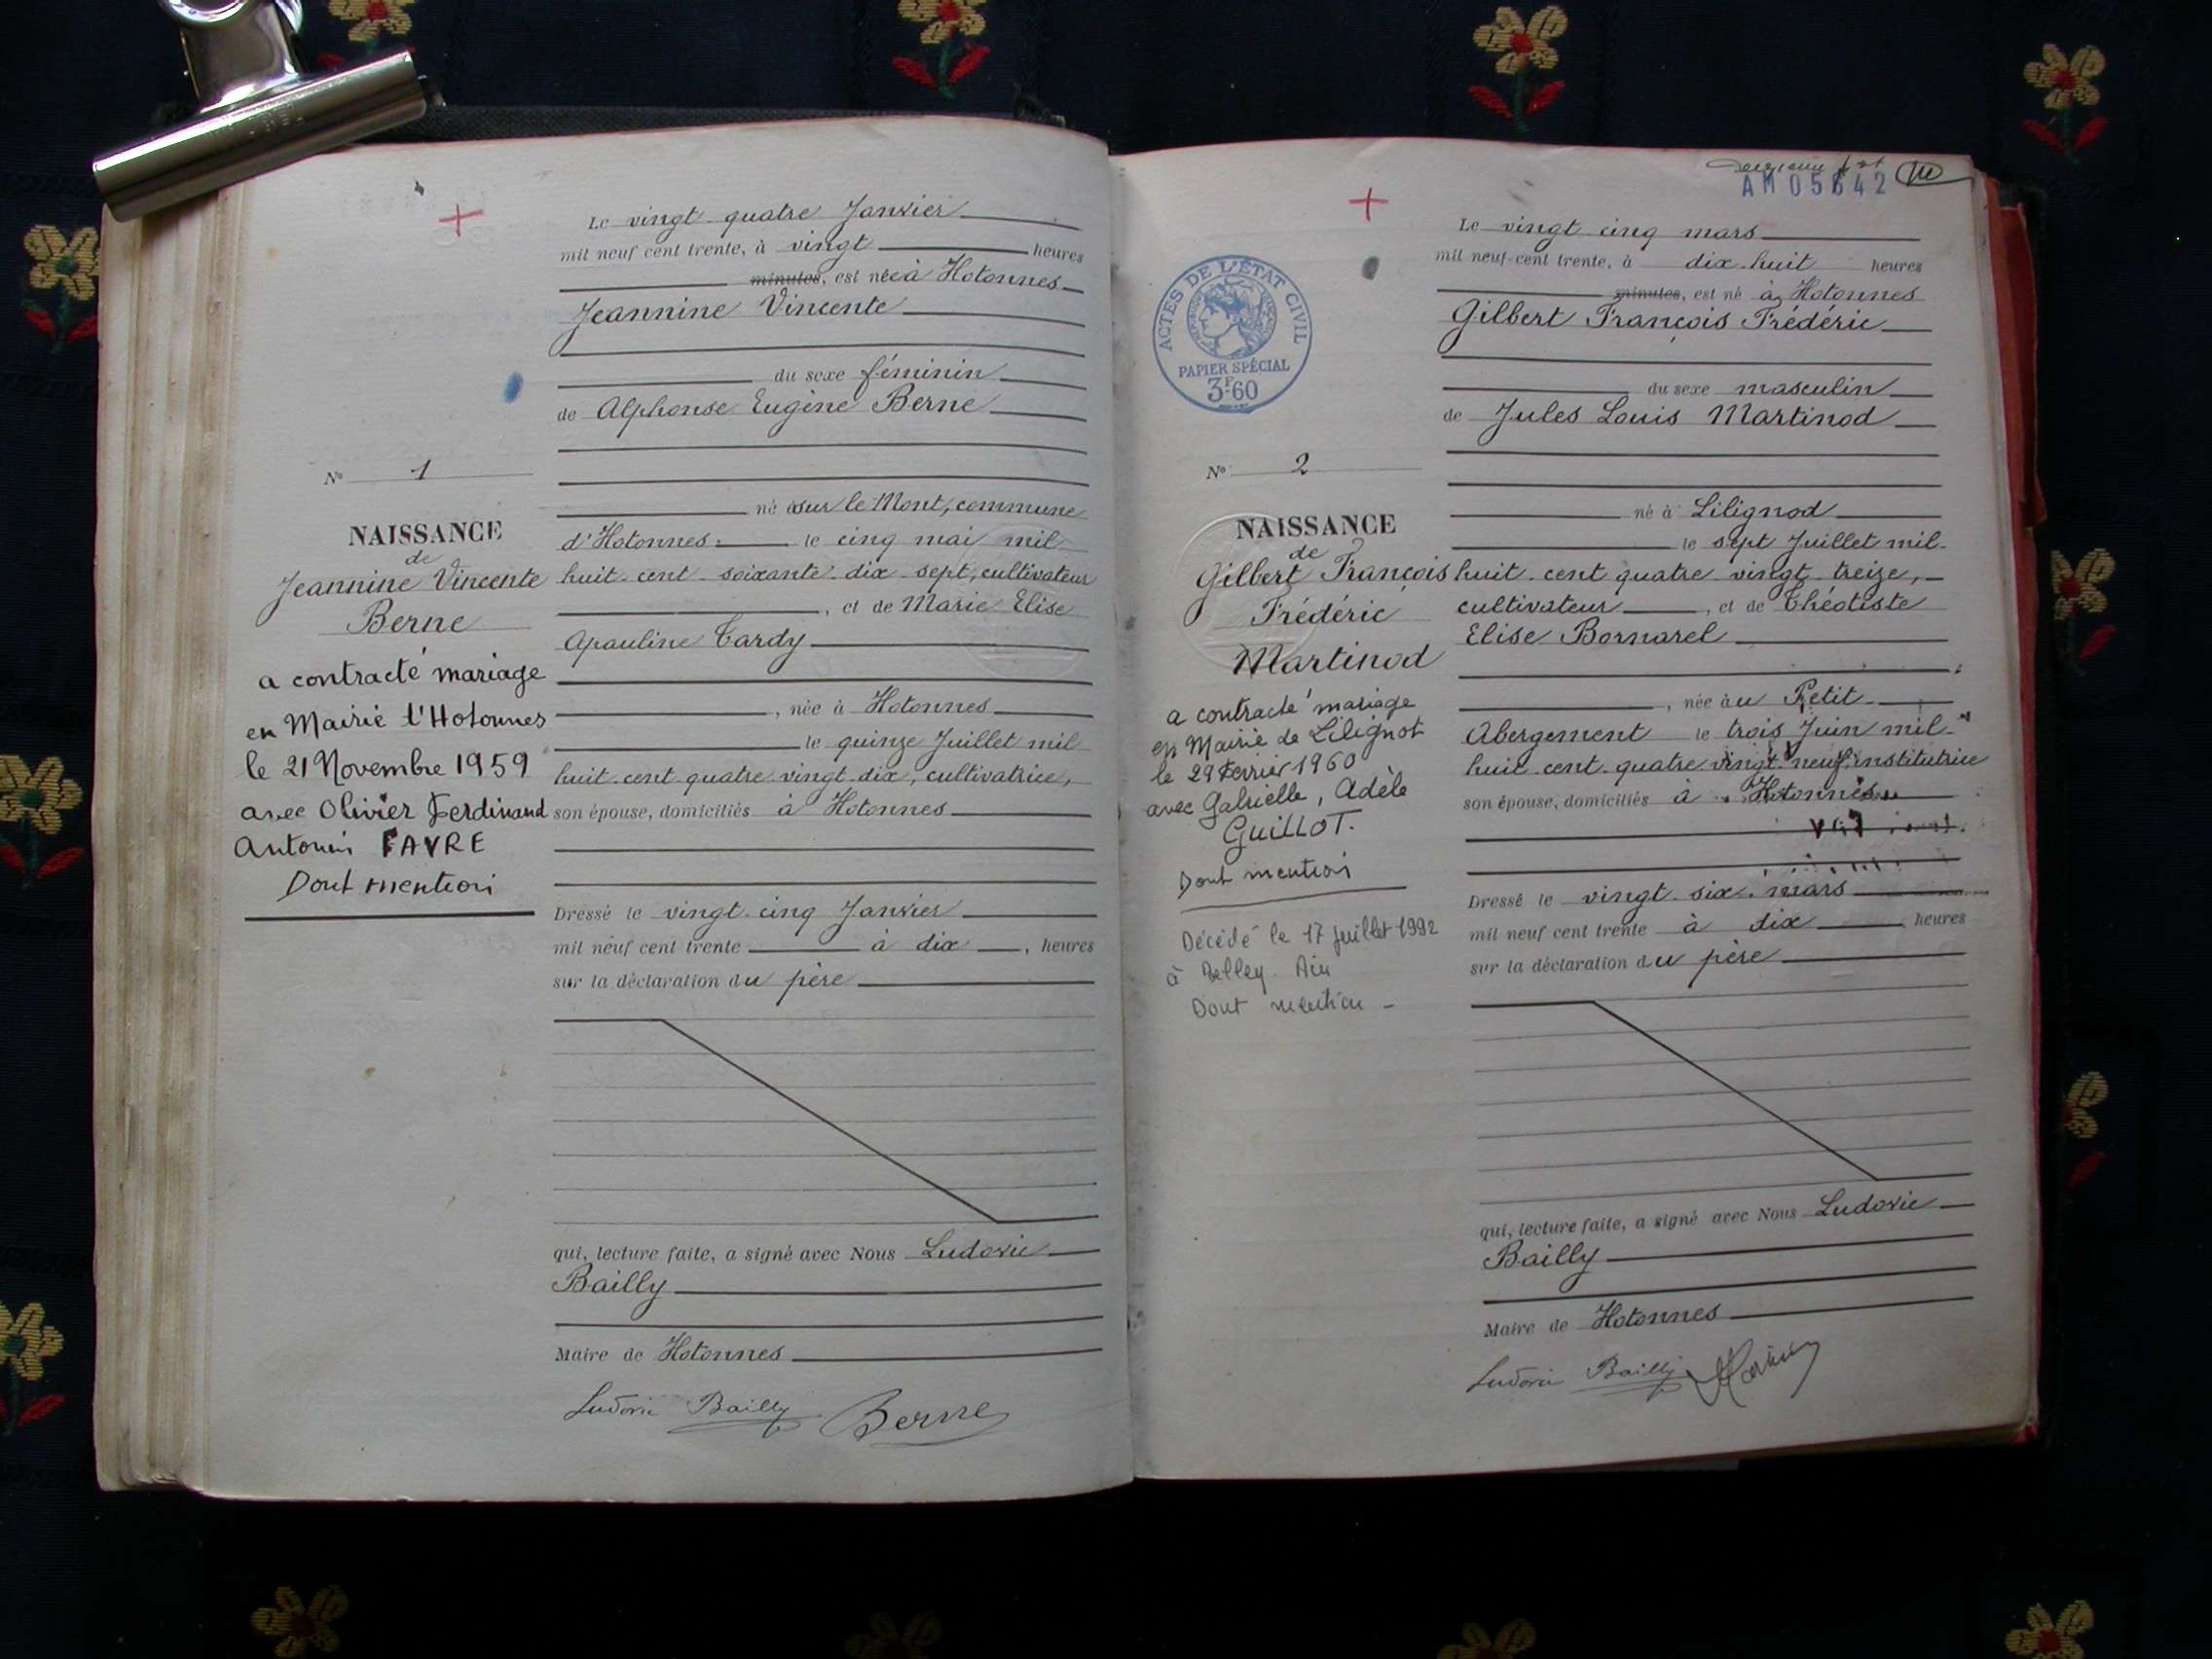 Le vingt quatre Janvier
mil neuf cent trente, à vingt heures
minutes, est née à Hotonnes
Jeannine Vincente
du sexe féminin
de Alphonse Eugène Berne
N° 1
né sur le Mont, commune
NAISSANCE
d'Hotonnes. le cinq mai mil
de
Jeannine Vincente
huit cent soixante dix sept, cultivateur
Berne
, et de Marie Elise
Apauline Tardy
a contracté mariage
, née à Hotonnes
en Mairie d'Hotonnes
le quinze Juillet mil
le 21 Novembre 1959
huit cent quatre vingt dix, cultivatrice,
avec Olivier Ferdinand
son épouse, domiciliés à Hotonnes
Antonin FAVRE
Dont mention
Dressé le vingt cinq Janvier
mil neuf cent trente à dix, heures
sur la déclaration du père
qui, lecture faite, a signé avec Nous Ludovic
Bailly
Maire de Hotonnes
Ludovic Bailly Berne
AM 05642
Le vingt cinq mars
mil neuf cent trente, à dix huit heures
minutes, est né à Hotonnes
Gilbert François Frédéric
ACTES DE L'ÉTAT CIVIL
PAPIER SPÉCIAL
3F60
du sexe masculin
de Jules Louis Martinod
N° 2
né à Lilignod
NAISSANCE
le sept Juillet mil
de
Gilbert François
huit cent quatre vingt treize,
Frédéric
cultivateur, et de Théotiste
Martinod
Elise Bornarel
a contracté mariage
, née au Petit
en Mairie de Lilignot
Abergement le trois Juin mil
le 29 Février 1960
huit cent quatre vingt neuf institutrice
avec Gabrielle, Adèle
son épouse, domiciliés à Hotonnes
GUILLOT.
Dont mention
Dressé le vingt six mars
Décédé le 17 juillet 1992
mil neuf cent trente à dix heures
à Belley Ain
sur la déclaration du père
Dont mention -
qui, lecture faite, a signé avec Nous Ludovic
Bailly
Maire de Hotonnes
Ludovic Bailly